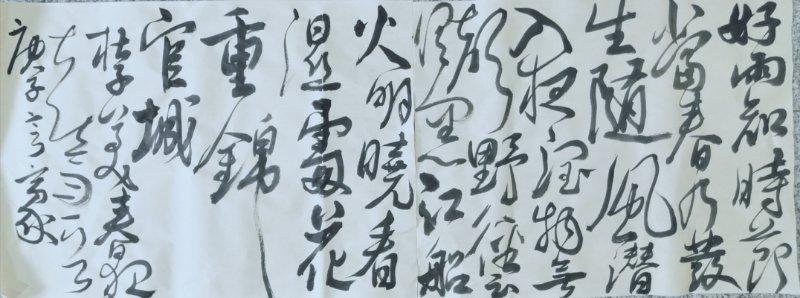 好雨知時節
當春乃發
生隨風潛
入夜潤物無
聲野徑雲
俱黑江船
火明曉看
濕花
重錦
官城
杜子美春夜
庚子